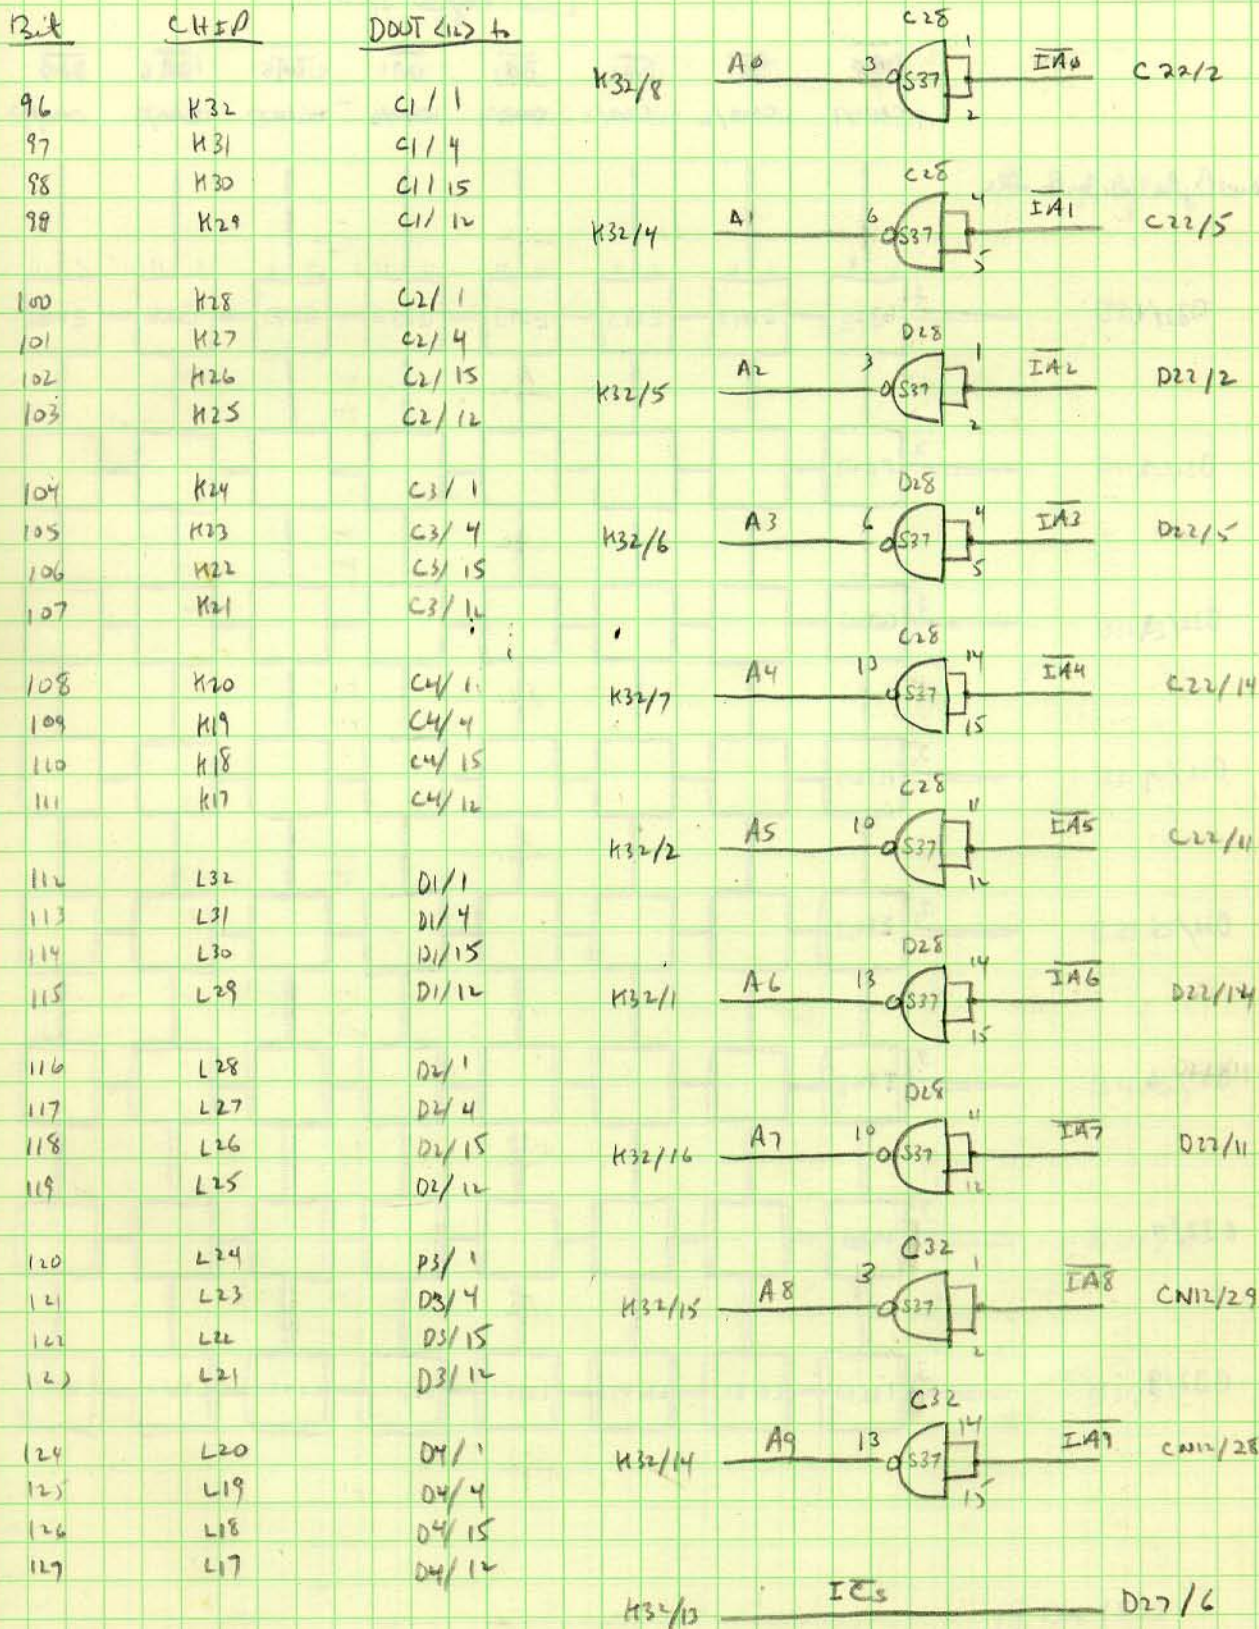 Bit CHIP DOUT <12> to
96 K32 C1/1
97 K31 C1/4
98 K30 C1/15
99 K29 C1/12
100 K28 C2/1
101 K27 C2/4
102 K26 C2/15
103 K25 C2/12
104 K24 C3/1
105 K23 C3/4
106 K22 C3/15
107 K21 C3/12
108 K20 C4/1
109 K19 C4/4
110 K18 C4/15
111 K17 C4/12
112 L32 D1/1
113 L31 D1/4
114 L30 D1/15
115 L29 D1/12
116 L28 D2/1
117 L27 D2/4
118 L26 D2/15
119 L25 D2/12
120 L24 D3/1
121 L23 D3/4
122 L22 D3/15
123 L21 D3/12
124 L20 D4/1
125 L19 D4/4
126 L18 D4/15
127 L17 D4/12
C28
K32/8 A0 3 S37 1 2 IA0 C22/2
C28
K32/4 A1 6 S37 4 5 IA1 C22/5
D28
K32/5 A2 3 S37 1 2 IA2 D22/2
D28
K32/6 A3 6 S37 4 5 IA3 D22/5
C28
K32/7 A4 13 S37 14 15 IA4 C22/14
C28
K32/2 A5 10 S37 11 12 IA5 C22/11
D28
K32/1 A6 13 S37 14 15 IA6 D22/14
D28
K32/16 A7 10 S37 11 12 IA7 D22/11
C32
K32/15 A8 3 S37 1 2 IA8 CN12/29
C32
K32/14 A9 13 S37 14 15 IA9 CN12/28
K32/13 ICS D27/6